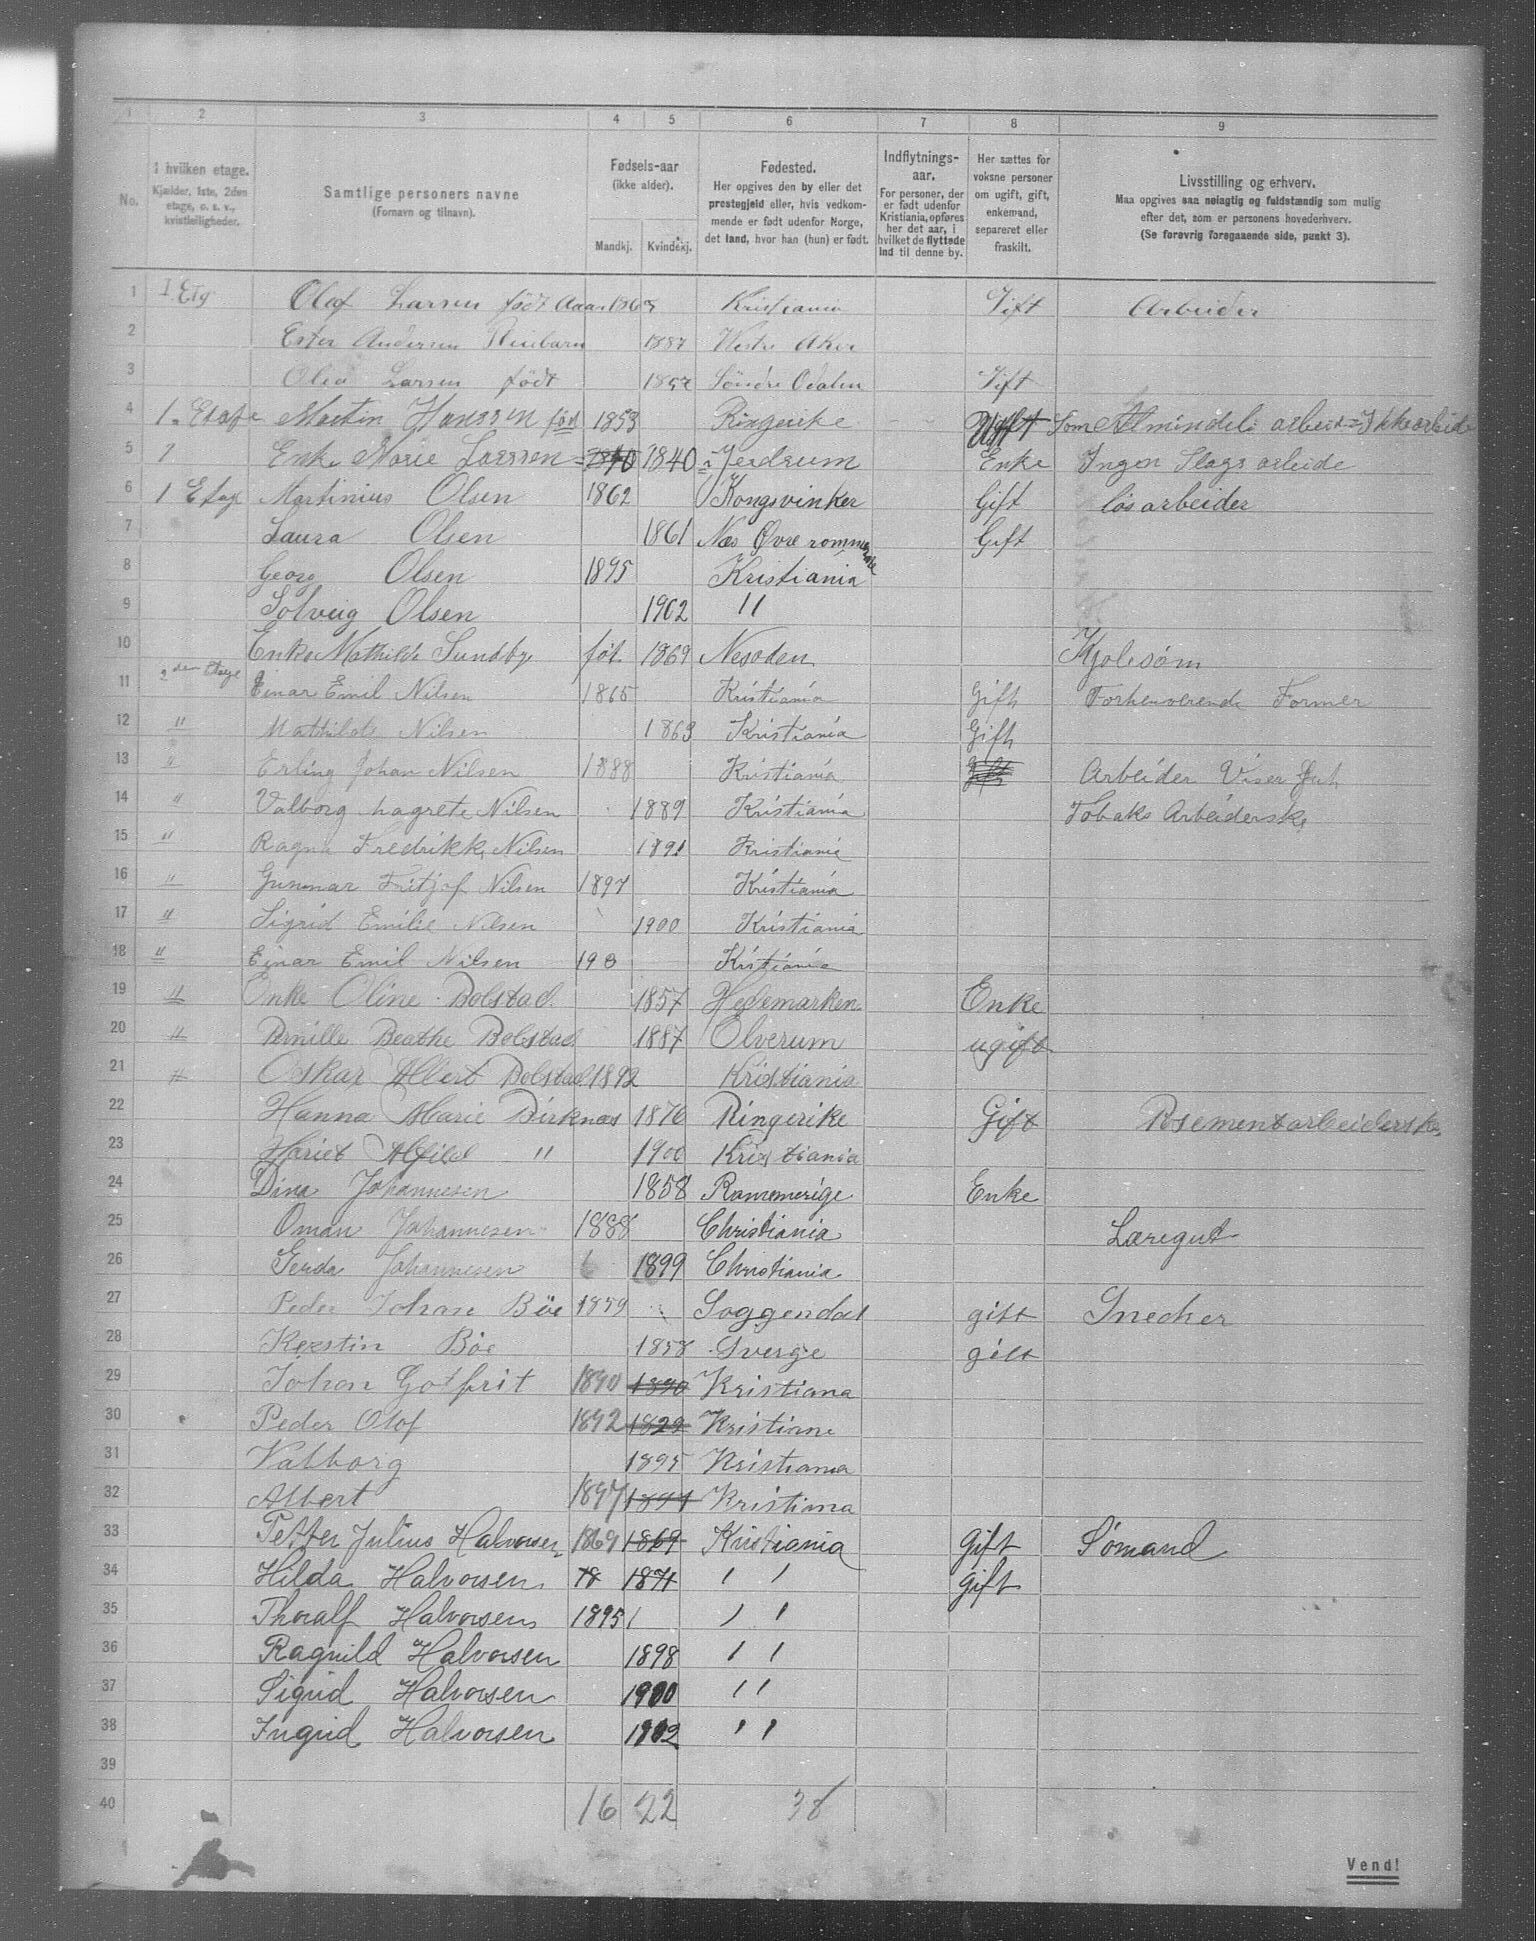 1 2 3 4 5 6 7 8 9
No.
I hvilken etage.
Kjælder, 1ste, 2den
etage, o. s. v.,
kvistleiligheder.
Samtlige personers navne
(Fornavn og tilnavn).
Fødsels-aar
(ikke alder).
Mandkj. Kvindekj.
Fødested.
Her opgives den by eller det
prestegjeld eller, hvis vedkom-
mende er født udenfor Norge,
det land, hvor han (hun) er født.
Indflytnings-
aar.
For personer, der
er født udenfor
Kristiania, opføres
her det aar, i
hvilket de flyttede
ind til denne by.
Her sættes for
voksne personer
om ugift, gift,
enkemand,
separeret eller
fraskilt.
Livsstilling og erhverv.
Maa opgives saa nøiagtig og fuldstændig som mulig
efter det, som er personens hovederhverv.
(Se forøvrig foregaaende side, punkt 3).
1 I Etg Olaf Larsen født Aar Kristiania Gift Arbeider
2 Ester Andersen 1887 Vestre Aker
3 Olea Larsen født Søndre Odalen Gift
4 1. Etage Martin Hanssen fød 1853 Ringerike Som Almindeli arbeid
5 Enke Marie Larsen 1840 Jerdrum Enke Ingen Slags arbeide
6 1 Etage Martinius Olsen 1862 Kongsvinker Gift løsarbeider
7 Laura Olsen 1861 Næs Øvre Gift
8 Georg Olsen 1895 Kristiania
9 Solveig Olsen 1902 "
10 Enke Mathilde Sundby føt 1869 Nesoden Kjolesøm
11 2den Etage Einar Emil Nilsen 1865 Kristiania Gift Forhenverende Former
12 " Mathilde Nilsen 1863 Kristiania Gift
13 " Erling Johan Nilsen 1888 Kristiania Gift Arbeider Viser Gut
14 " Valborg Nilsen 1889 Kristiania Tobaks Arbeiderske
15 " Ragna Fredrikke Nilsen 1891 Kristiania
16 " Gunnar Fritjof Nilsen 1897 Kristiania
17 " Sigrid Emilie Nilsen 1900 Kristiania
18 " Einar Emil Nilsen Kristiania
19 " Enke Oline Bolstad 1857 Hedemarken Enke
20 " Pernille Beathe Bolstad 1887 Elverum ugift
21 " Oskar Albert Bolstad 1892 Kristiania
22 Hanna Marie Birknas 1876 Ringerike Gift Posementarbeiderske
23 Hariet Alfild " 1900 Kristiania
24 Dina Johannesen 1858 Rommerige Enke
25 Oman Johannesen 1888 Christiania Læregut
26 Gerda Johannesen 1899 Christiania
27 Peder Johan Böe 1859 Soggendal gift Snecker
28 Kerstin Böe 1858 Sverge gift
29 Johan Gotfrit 1890 1890 Kristiana
30 Peder Olof 1892 Kristiane
31 Valborg 1895 Kristiania
32 Albert 1897 1897 Kristiana
33 Petter Julius Halvorsen 1869 1869 Kristiania Gift Sømand
34 Hilda Halvorsen 18 1871 " Gift
35 Thoralf Halvorsen 1895 "
36 Ragnild Halvorsen 1898 "
37 Sigrid Halvorsen 1900 "
38 Ingrid Halvorsen 1902 "
39
40 16 22 38
Vend!